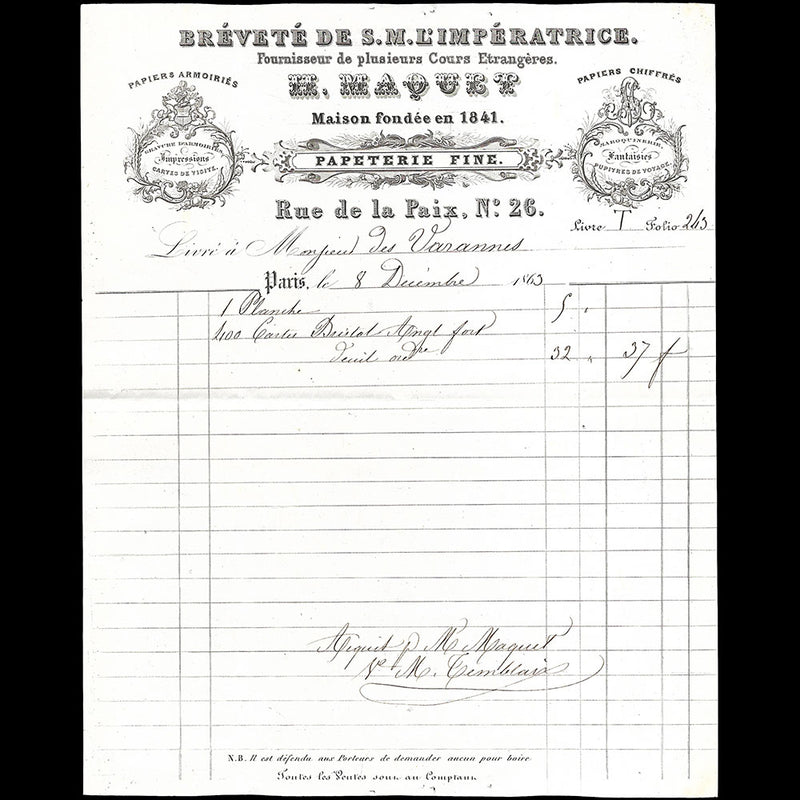 BRÉVETÉ DE S.M. L'IMPÉRATRICE.
Fournisseur de plusieurs Cours Etrangères.
H. MAQUET
Maison fondée en 1841.
PAPETERIE FINE.
Rue de la Paix, N.º 26.
PAPIERS ARMOIRIÉS
GRAVURE D'ARMOIRIES
Impressions
CARTES DE VISITE.
PAPIERS CHIFFRÉS
MAROQUINERIE.
Fantaisies
PUPITRES DE VOYAGE.
Livre T Folio 243
Livré à Monsieur des Varannes
Paris, le 8 Décembre 1863
1 Planche 5 "
400 Cartes Bristol Angl fort
deuil ordre 32 " 37 f
Acquit p M Maquet
M. Temblaix
N.B. Il est défendu aux Porteurs de demander aucun pour boire
Toutes les Ventes sont au Comptant